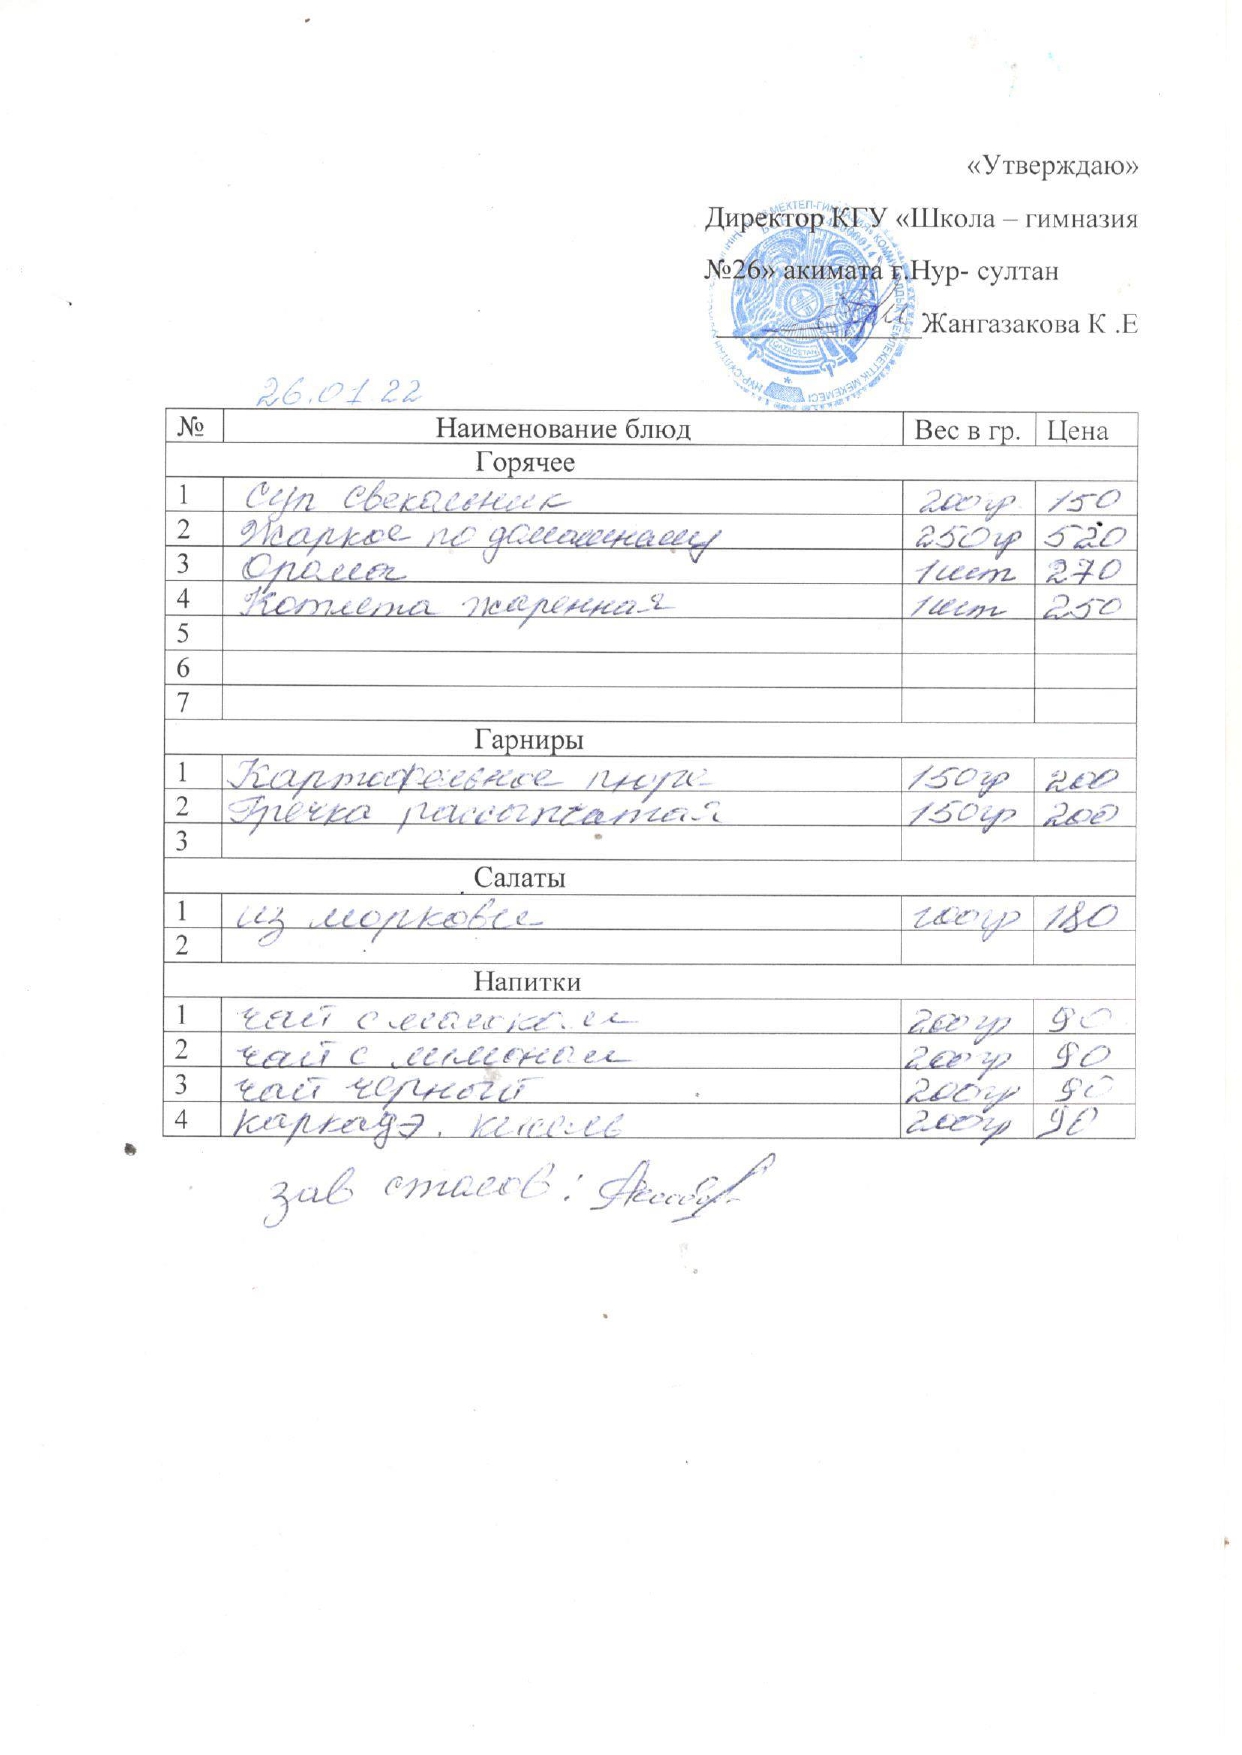 «Утверждаю»
Директор КГУ «Школа – гимназия
№26» акимата г.Нур- султан
Жангазакова К .Е
26.01.22
№ Наименование блюд Вес в гр. Цена
Горячее
1 Суп свекольник 200гр 150
2 Жаркое по домашнему 250гр 520
3 Орама 1шт 270
4 Котлета жаренная 1шт 250
5
6
7
Гарниры
1 Картофельное пюре 150гр 200
2 Гречка рассыпчатая 150гр 200
3
Салаты
1 из моркови 100гр 180
2
Напитки
1 чай с молоком 200гр 90
2 чай с лимоном 200гр 90
3 чай черный 200гр 90
4 каркадэ. кисель 200гр 90
зав столов: